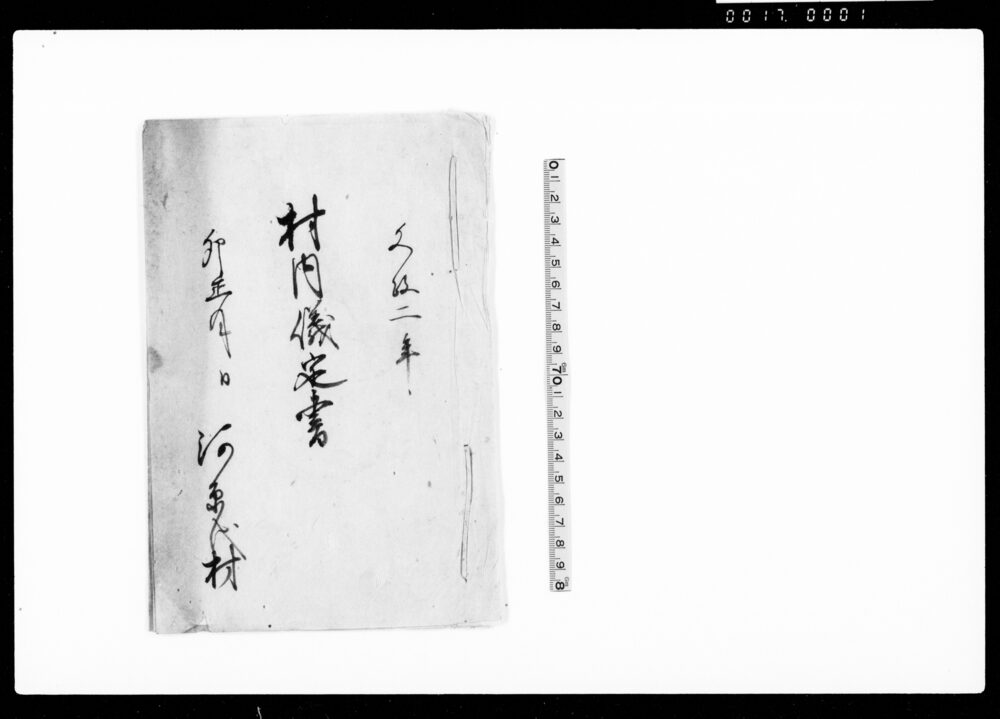 0017. 0001
文政二年
村内儀定書
卯正月日 河原代村
0 1 2 3 4 5 6 7 8 9 10 1 2 3 4 5 6 7 8 9 8